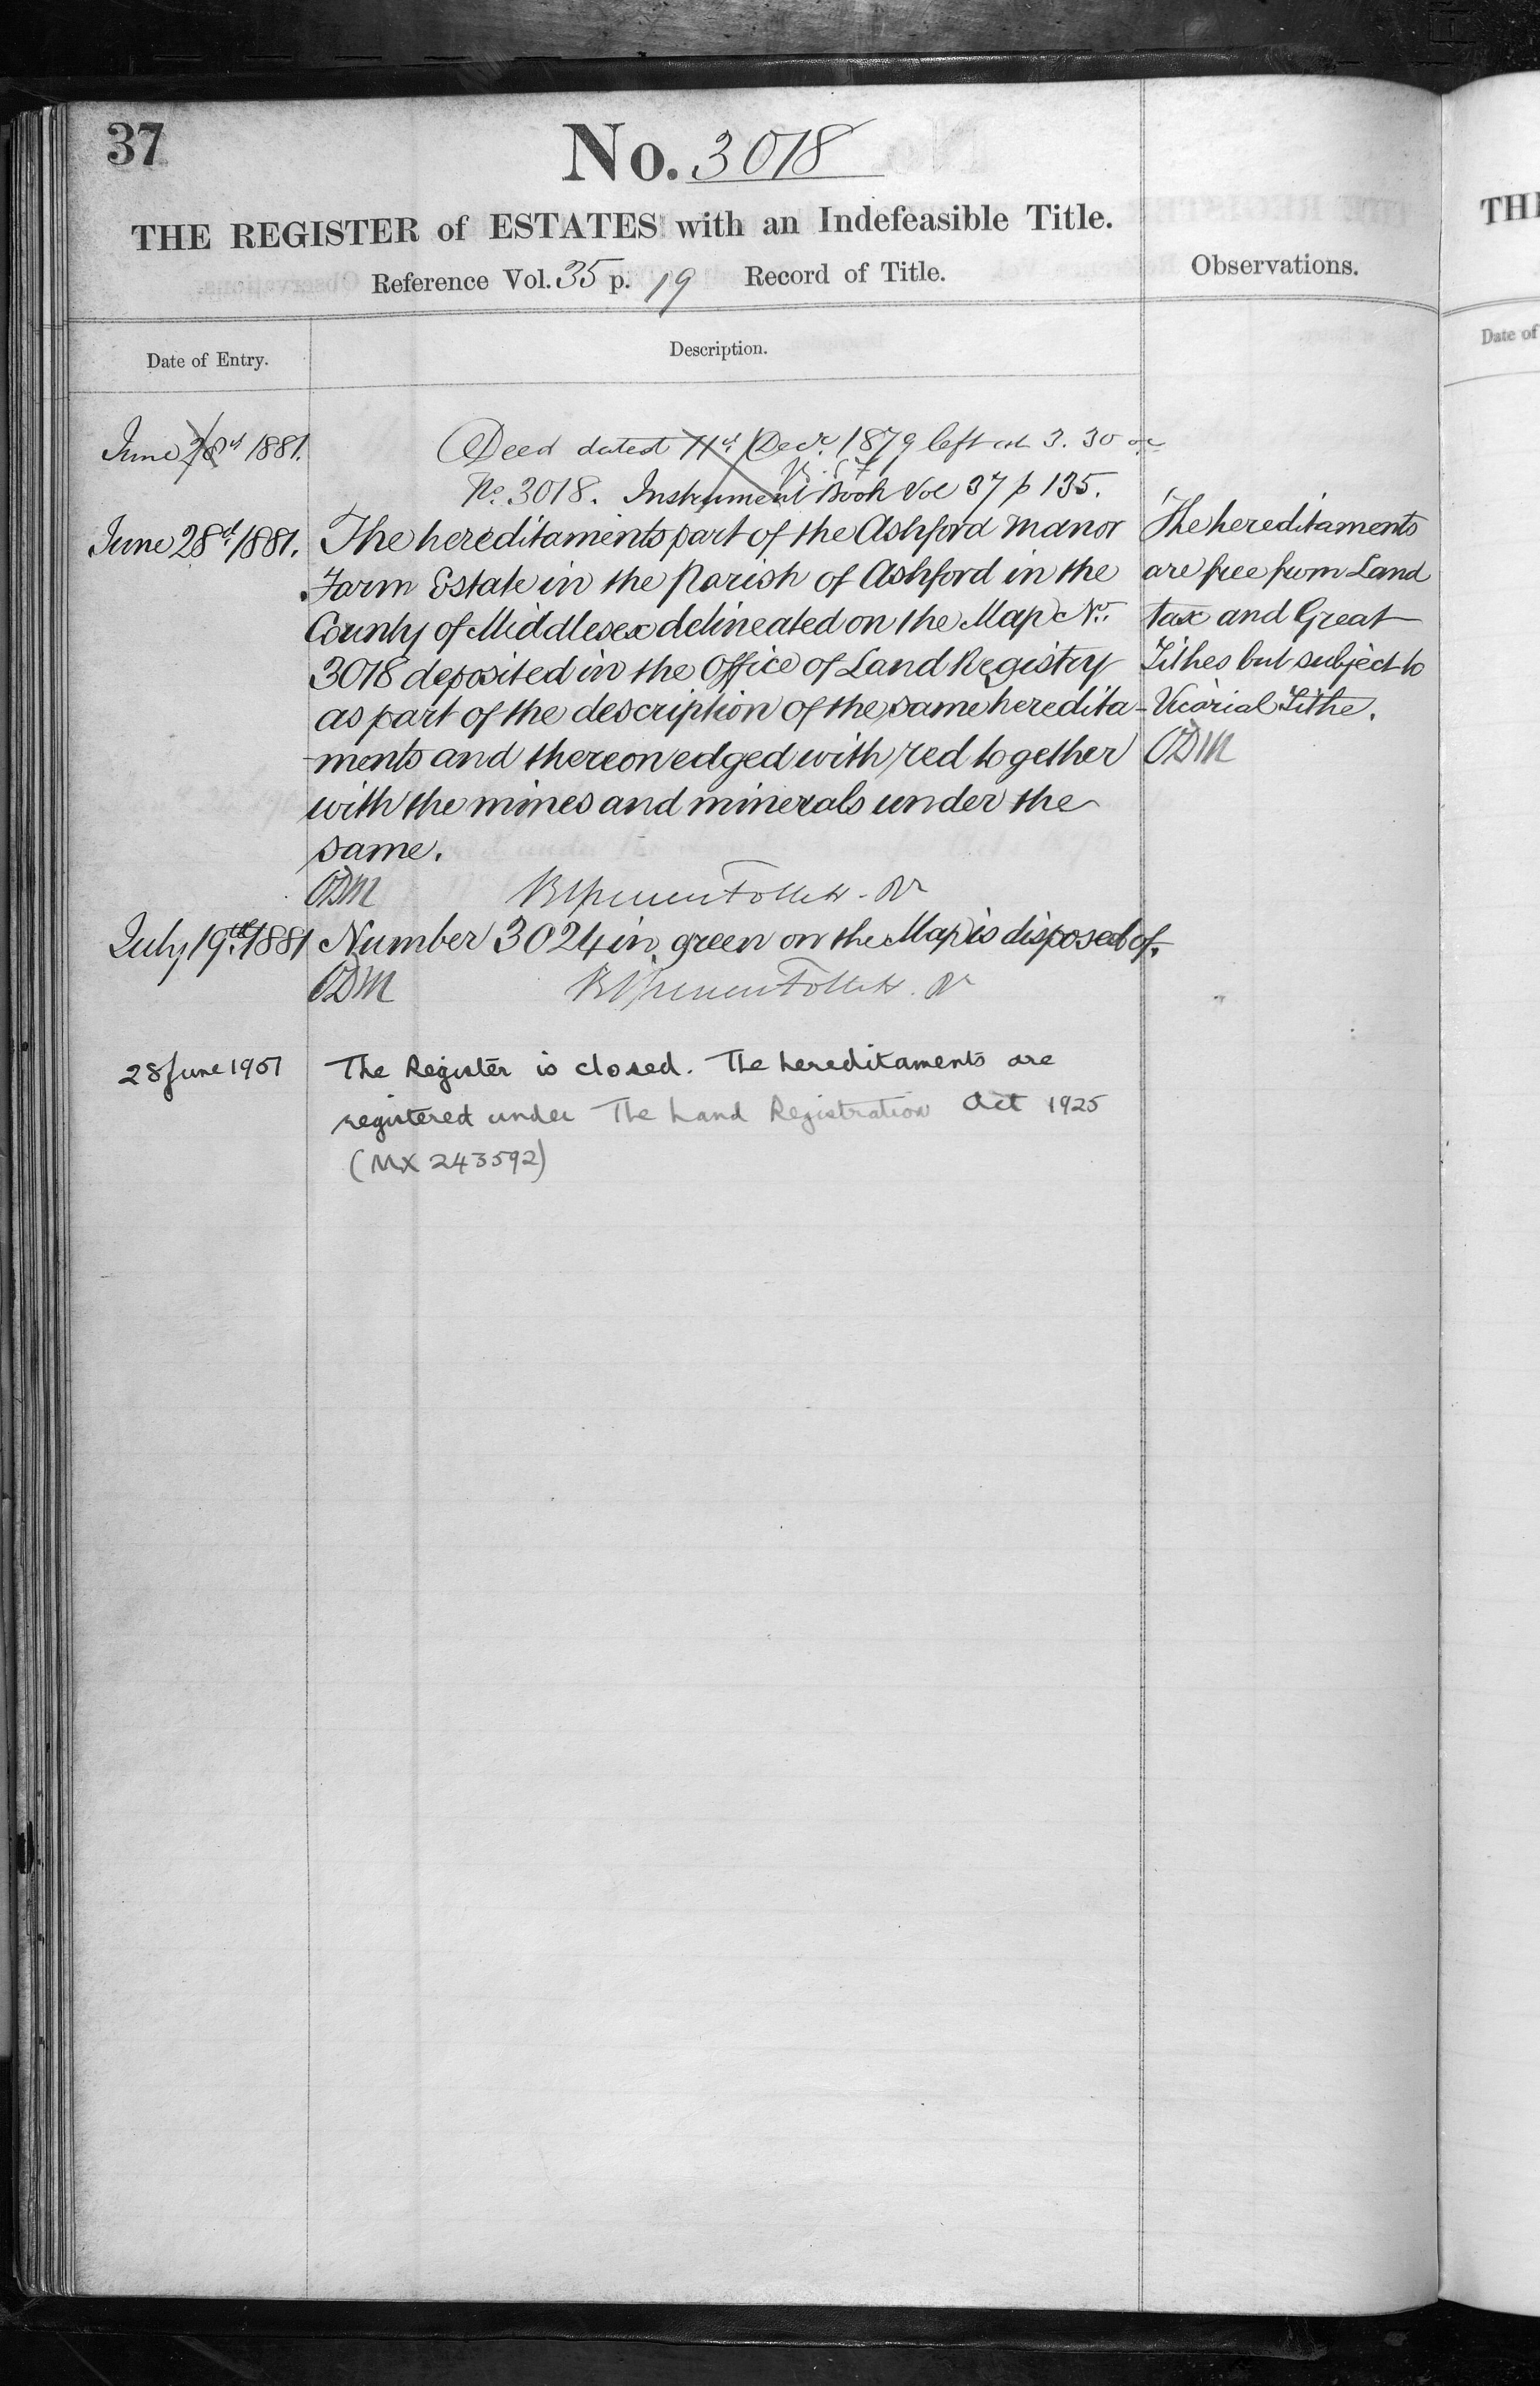 37
No. 3018
THE REGISTER of ESTATES with an Indefeasible Title.
Reference Vol. 35 p. 19 Record of Title.
Observations.
Date of Entry.
Description.
June 28th 1881.
Deed dated 11th Decr. 1879 left at 3.30
No. 3018. Instrument Book Vol 37 p 135.
June 28th 1881.
The hereditaments part of the Ashford Manor
Farm Estate in the Parish of Ashford in the
County of Middlesex delineated on the Map No.
3018 deposited in the Office of Land Registry
as part of the description of the same heredita-
ments and thereon edged with red together
with the mines and minerals under the
same.
ODM
The hereditaments
are free from Land
tax and Great
Tithes but subject to
Vicarial Tithe.
ODM
July 19th 1881
Number 3024 in green on the Map is disposed of.
ODM
28 June 1951
The Register is closed. The hereditaments are
registered under The Land Registration Act 1925
(MX 243592)
TH
Date of